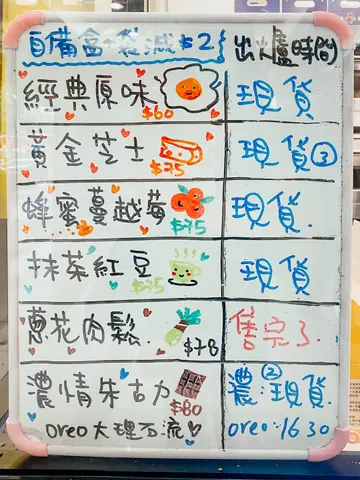 自備盒.袋減$2 出爐時間
經典原味 $60 現貨
黃金芝士 $75 現貨③
蜂蜜蔓越莓 $75 現貨.
抹茶紅豆 $75 現貨
蔥花肉鬆. $78 售完了.
濃情朱古力 $80 濃:②現貨.
oreo大理石流 oreo:1630